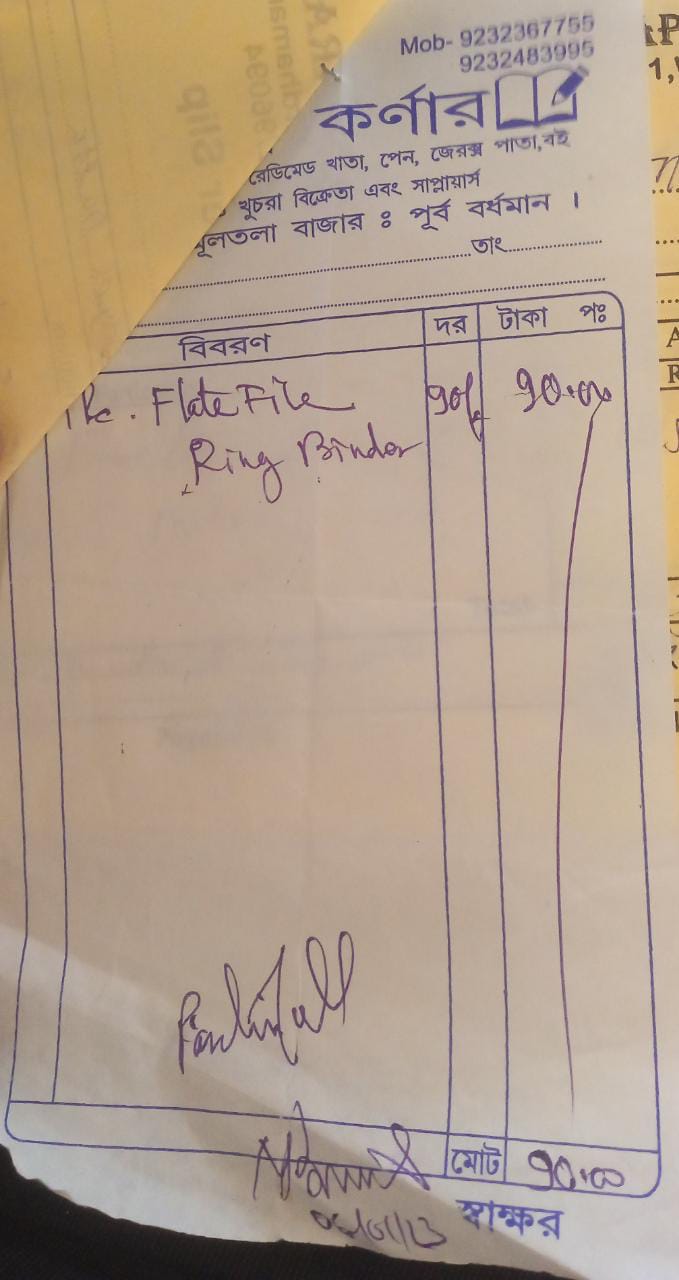 Mob- 9232367755
9232483995
কর্ণার
রেডিমেড খাতা, পেন, জেরক্স পাতা,বই
খুচরা বিক্রেতা এবং সাপ্লায়ার্স
মূলতলা বাজার ঃ পূর্ব বর্ধমান ।
তাং
বিবরণ দর টাকা পঃ
Flate File 90/- 90.00
Ring Binder
মোট 90.00
স্বাক্ষর